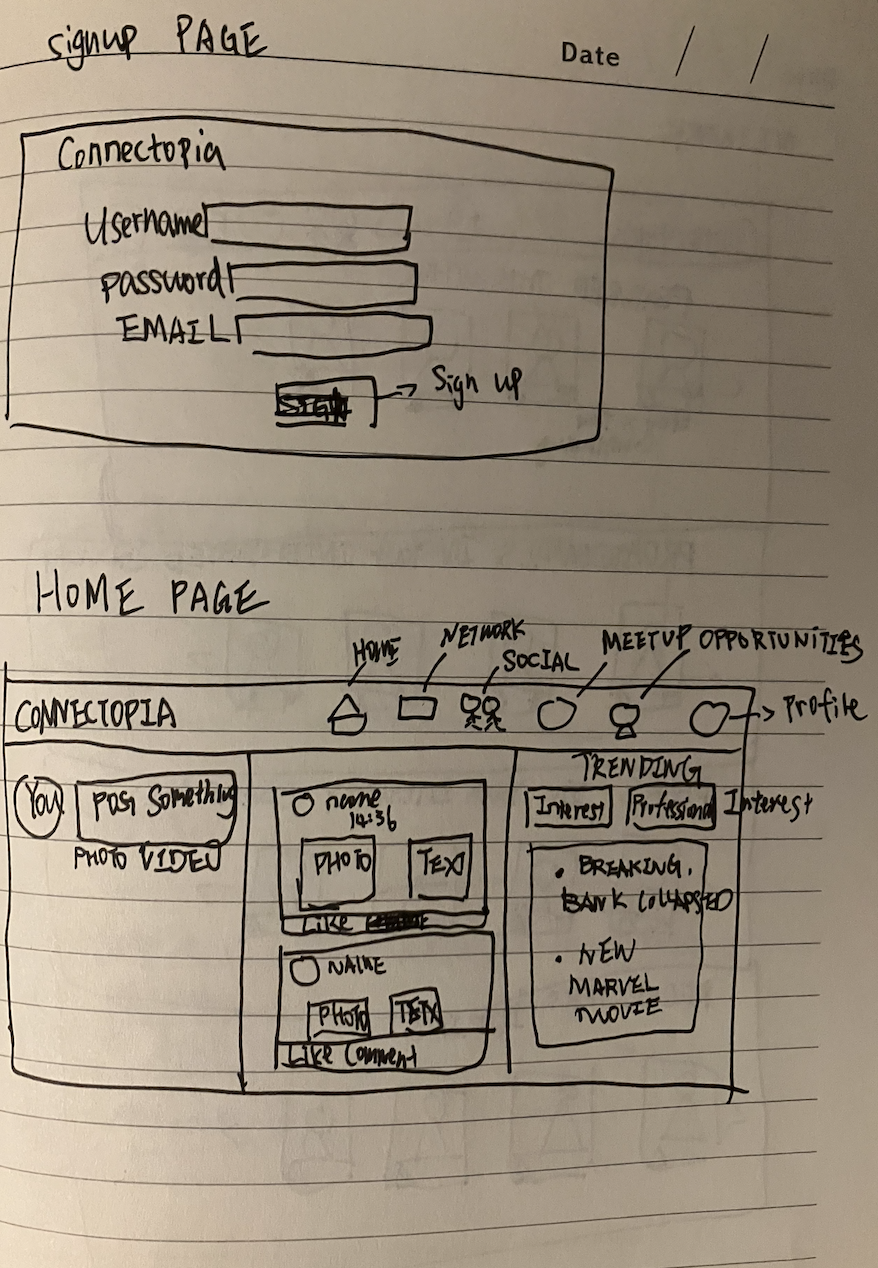 signup PAGE
Date / /
Connectopia
Username
password
EMAIL
SIGN
Sign up
HOME PAGE
HOME
NETWORK
SOCIAL
MEETUP OPPORTUNITIES
CONNECTOPIA
Profile
You
POST Something
PHOTO VIDEO
name
14:36
PHOTO
TEXT
Like
NAME
PHOTO
TETX
Like Comment
TRENDING
Interest
Professional Interest
• BREAKING,
BANK COLLAPSED
• NEW
MARVEL
MOVIE